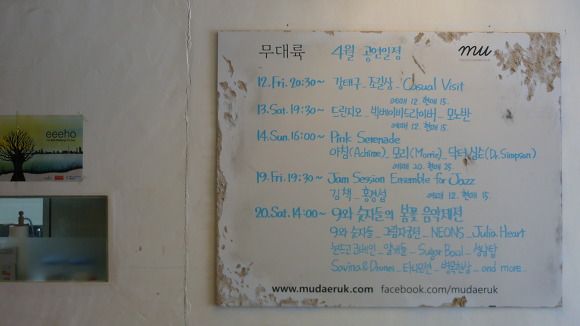 eeeho
무대륙 4월 공연일정 mu
12.Fri.20:30~ 김태구_조길상_Casual Visit
예매 12. 현매 15.
13.Sat.19:30~ 드린지오_빅베이비드라이버_모노반
예매 12. 현매 15.
14.Sun.16:00~ Pink Serenade
아침(Achime)_모리(Morrie)_닥터심슨(Dr.Simpson)
예매 20. 현매 25.
19.Fri.19:30~ Jam Session Ensemble for Jazz
김책_홍경섭 예매 12. 현매 15.
20.Sat.14:00~ 9와 숫자들의 봄꽃 음악제전
9와 숫자들_그림자궁전_NEONS_Julia Heart
눈뜨고코베인_알레들_Sugar Bowl_선남탑
Savina & Drones_ _and more..
www.mudaeruk.com facebook.com/mudaeruk